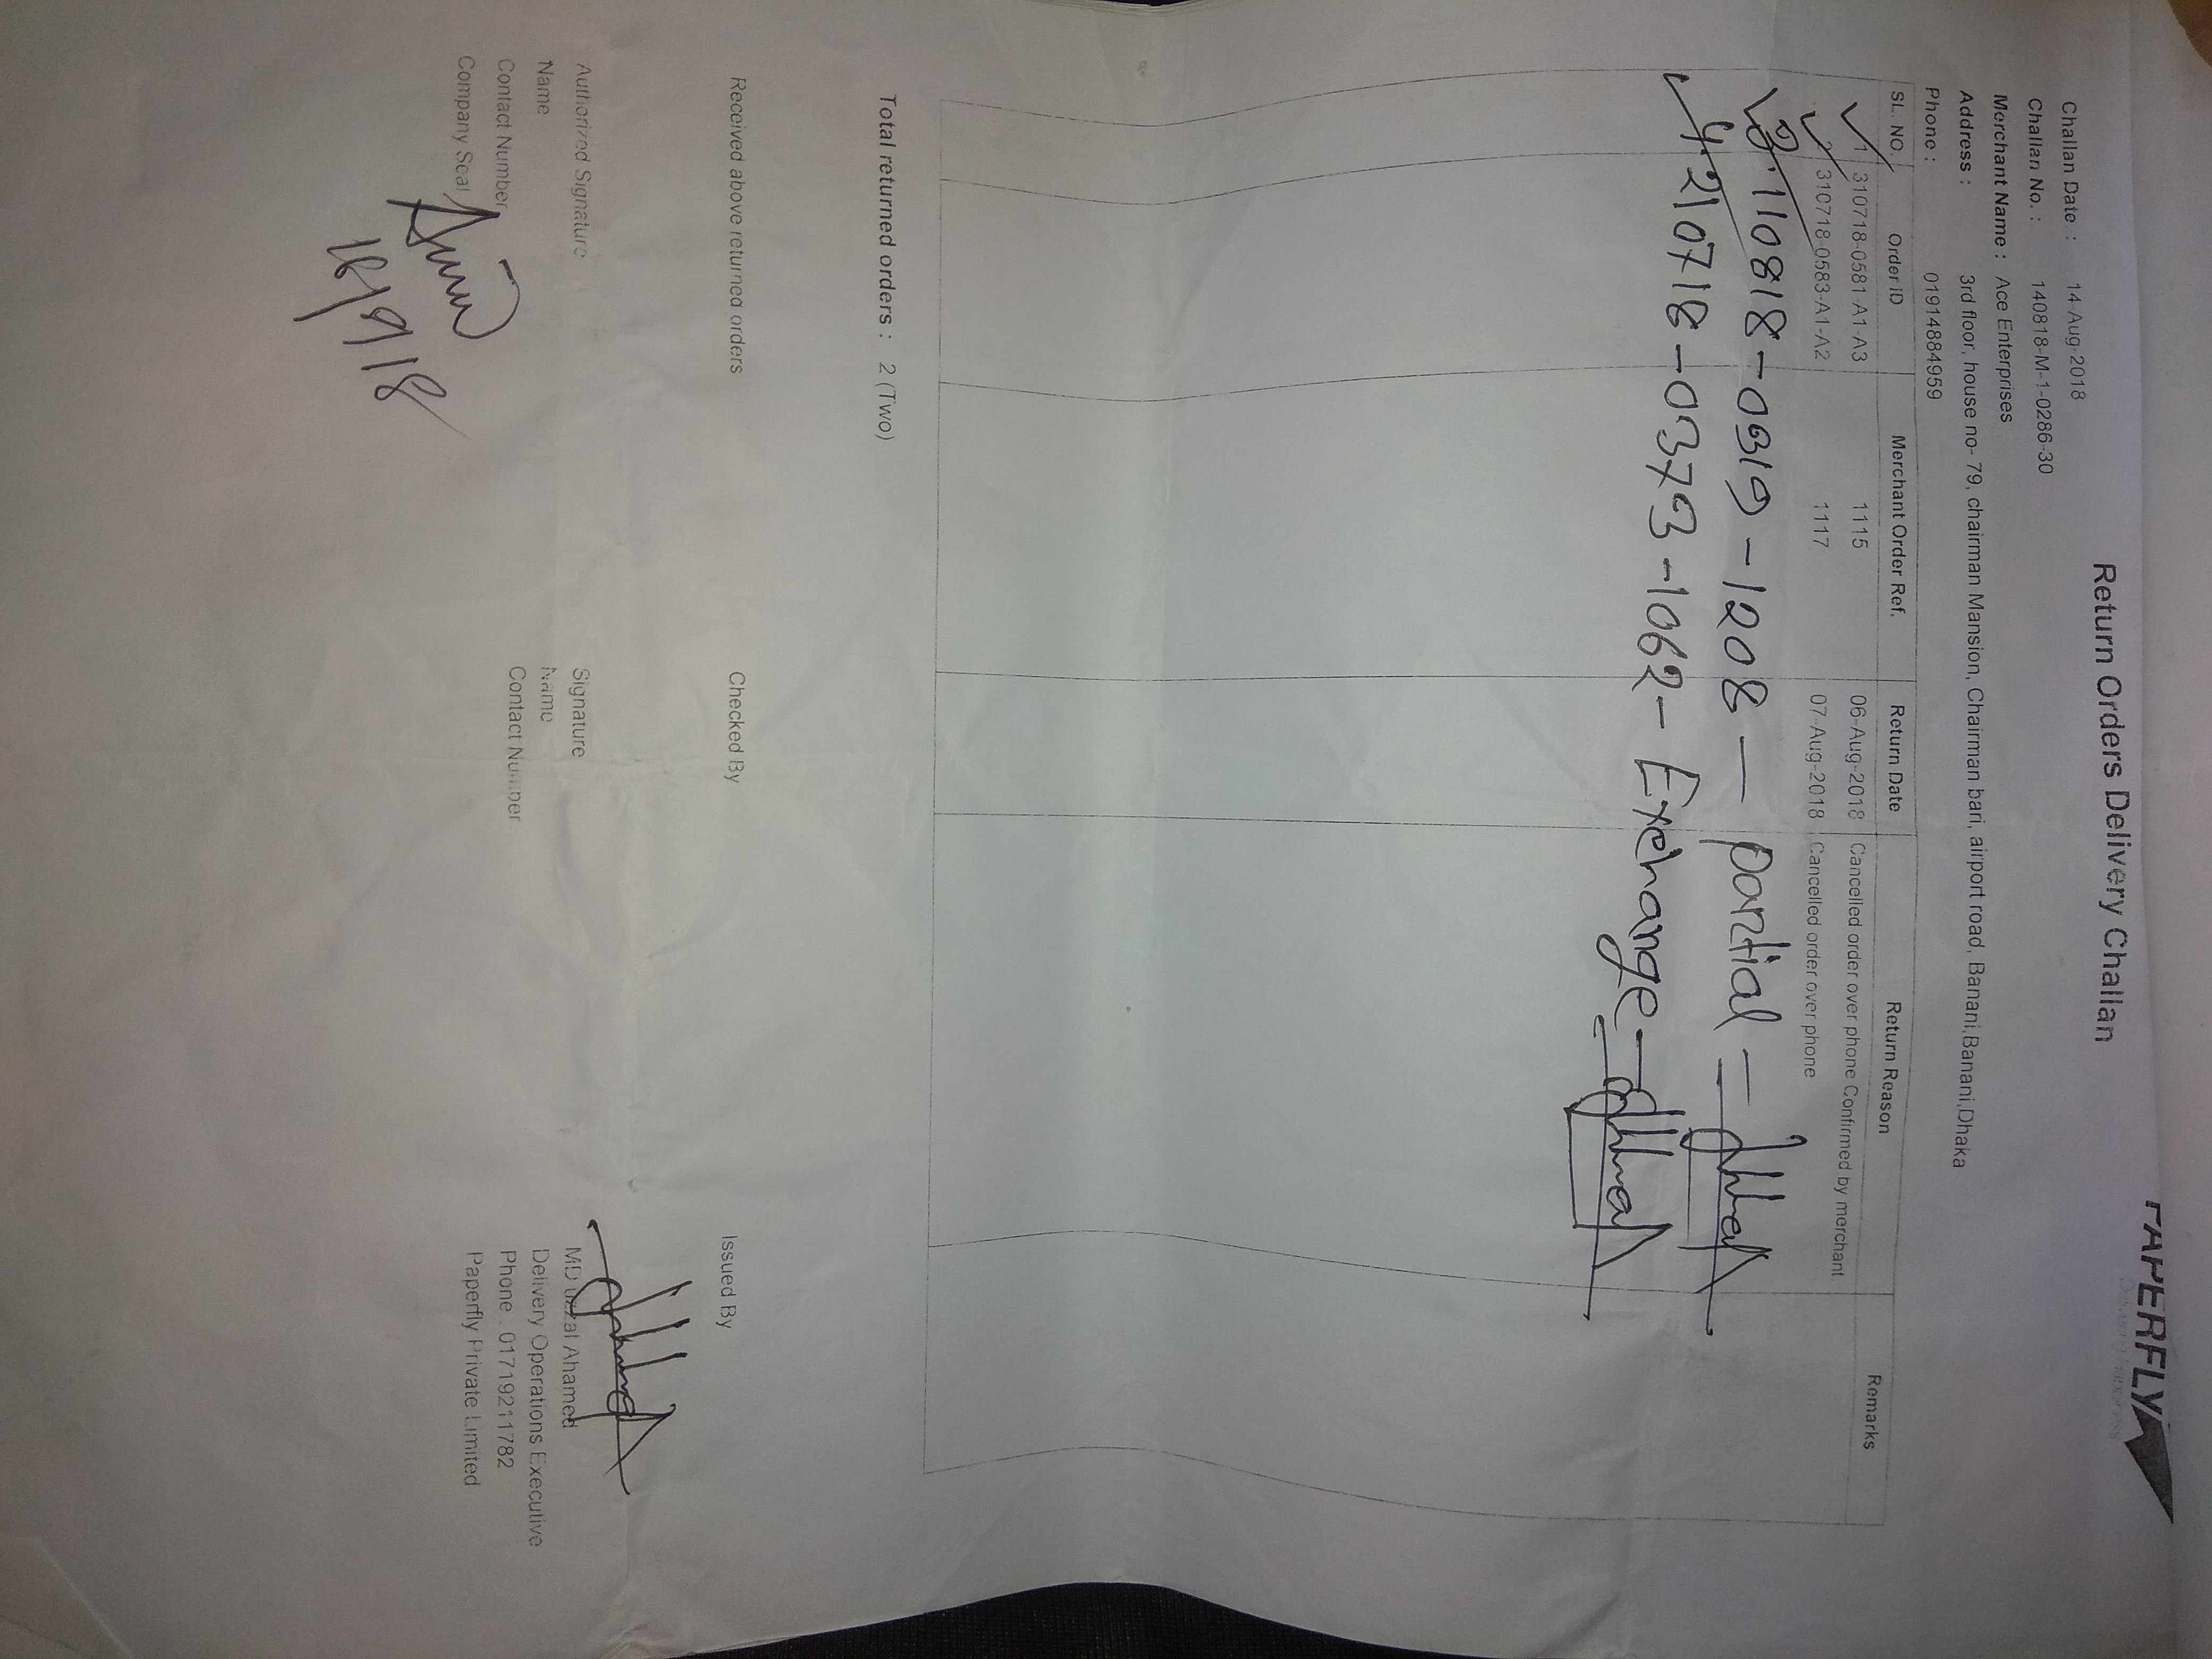 PAPERFLY
Delivering Happiness
Return Orders Delivery Challan
Challan Date : 14-Aug-2018
Challan No. : 140818-M-1-0286-30
Merchant Name : Ace Enterprises
Address : 3rd floor, house no- 79, chairman Mansion, Chairman bari, airport road, Banani,Banani,Dhaka
Phone : 01914884959
SL. NO. Order ID Merchant Order Ref. Return Date Return Reason Remarks
1 310718-0581-A1-A3 1115 06-Aug-2018 Cancelled order over phone Confirmed by merchant.
2 310718-0583-A1-A2 1117 07-Aug-2018 Cancelled order over phone
3. 110818-0319-1208 — partial =
4. 210718-0373-1062- Exchange =
Total returned orders : 2 (Two)
Received above returned orders Checked By Issued By
Authorized Signature Signature MD uzzal Ahamed
Name Name Delivery Operations Executive
Contact Number Contact Number Phone : 01719211782
Company Seal Paperfly Private Limited
16/8/18